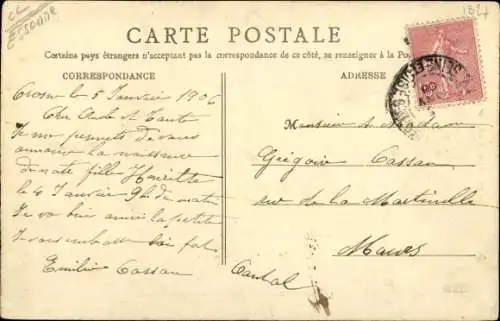 Essonne
CARTE POSTALE
Certains pays étrangers n'acceptant pas la correspondance de ce côté, se renseigner à la Po
CORRESPONDANCE
ADRESSE
Crosne le 5 Janvier 1906
Cher Oncle et Tante
Je me permets de vous
annoncer la naissance
de notre fille Henriette
le 4 Janvier 9h du matin
Je va bien ainsi la petite
Je vous embrasse fois
Emilie Cassan
Monsieur Madame
Grégoire Cassan
de la Martinelle
Maurs
Cantal